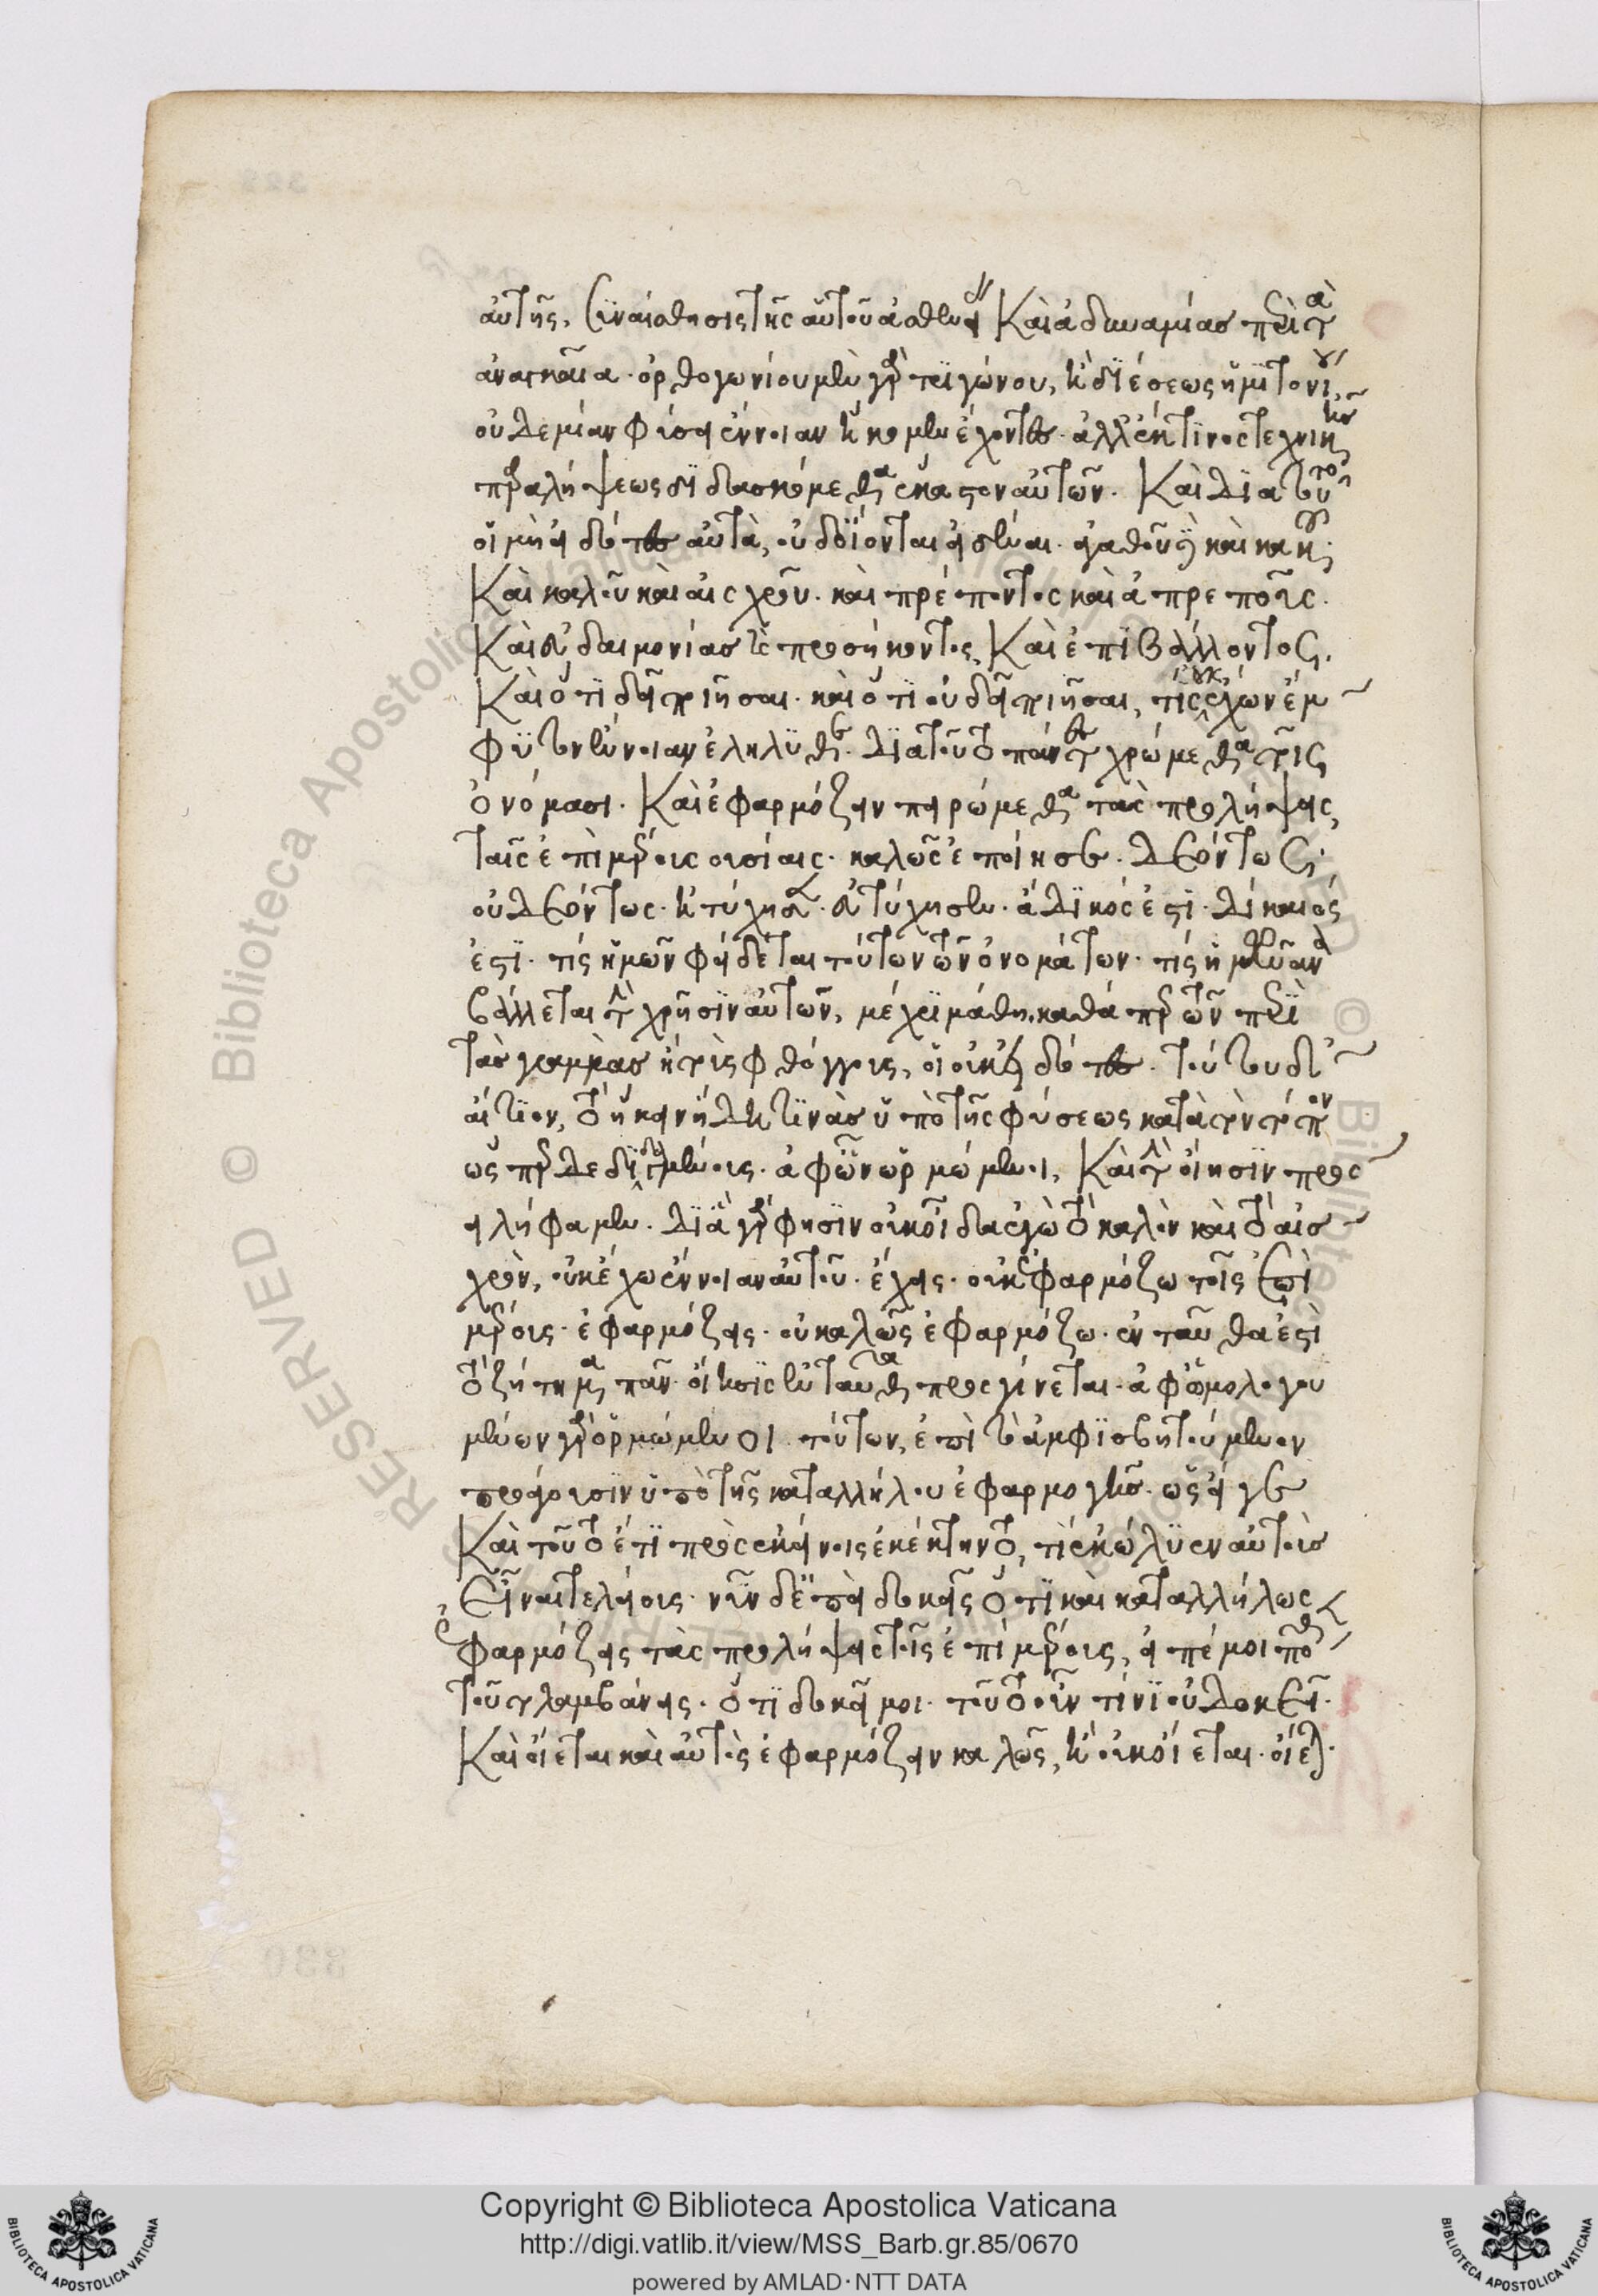 αὐτῆς, συναίσθησις τῆς αὑτοῦ ἀσθενείας Καὶ ἀδυναμίας περὶ τὰ
ἀναγκαῖα. ὀρθογωνίου μὲν γὰρ τριγώνου, ἢ διέσεως ἡμιτονίου,
οὐδεμίαν φύσει ἔννοιαν ἥκομεν ἔχοντες. ἀλλ' ἔκ τινος τεχνικῆς
παραλήψεως διδασκόμεθα ἕκαστον αὐτῶν. Καὶ διὰ τοῦτο
οἱ μὴ εἰδότες αὐτὰ, οὐδ' οἴονται εἰδέναι. ἀγαθοῦ δὲ καὶ κακοῦ.
Καὶ καλοῦ καὶ αἰσχροῦ. καὶ πρέποντος καὶ ἀπρεποῦς.
Καὶ εὐδαιμονίας τε προσήκοντος, Καὶ ἐπιβάλλοντος,
Καὶ ὅ τι δεῖ ποιῆσαι. καὶ ὅ τι οὐ δεῖ ποιῆσαι, τίς οὐκ ἔχων ἔμ
φυτον ἔννοιαν ἐλήλυθε. Διὰ τοῦτο πάντες χρώμεθα τοῖς
ὀνόμασι. Καὶ ἐφαρμόζειν πειρώμεθα τὰς προλήψεις,
ταῖς ἐπὶ μέρους οὐσίαις. καλῶς ἐποίησε. Δεόντως.
οὐ Δεόντως. ἠτύχησεν. εὐτύχησεν. ἄδικός ἐστι. Δίκαιός
ἐστι. τίς ἡμῶν φείδεται τούτων τῶν ὀνομάτων. τίς ἡμῶν ἀνα
βάλλεται τὴν χρῆσιν αὐτῶν, μέχρι μάθῃ, καθάπερ τῶν περὶ
τὰς γραμμὰς ἢ τοὺς φθόγγους, οἱ οὐκ εἰδότες. τούτου δ'
αἴτιον, τὸ ἥκειν ἤδη τινὰς ὑπὸ τῆς φύσεως κατὰ τὸν τόπον
ὥσπερ δεδιδαγμένους. ἀφ' ὧν ὁρμώμενοι, Καὶ τὴν οἴησιν προσ
ειλήφαμεν. Διὰ γὰρ φησὶν οὐκ οἶδα ἐγὼ τὸ καλὸν καὶ τὸ αἰσ
χρὸν, οὐκ ἔχω ἔννοιαν αὐτοῦ. ἔχεις. οὐκ ἐφαρμόζω τοῖς ἐπὶ
μέρους. ἐφαρμόζεις. οὐ καλῶς ἐφαρμόζω. ἐνταῦθα ἐστὶ
τὸ ζήτημα πᾶν. οἴησις ἐνταῦθα προσγίνεται. ἀφ' ὁμολογου
μένων γὰρ ὁρμώμενοι τούτων, ἐπὶ τὸ ἀμφισβητούμενον
προάγουσιν ὑπὸ τῆς καταλλήλου ἐφαρμογῆς. ὡς εἴ γε
Καὶ τοῦτο ἔτι πρὸς ἐκείνοις ἐκέκτηντο, τί ἐκώλυεν αὐτοὺς
Εἶναι τελείους. νῦν δ' ἐπεὶ δοκεῖς ὅτι καὶ καταλλήλως
ἐφαρμόζεις τὰς προλήψεις τοῖς ἐπὶ μέρους, εἰπέ μοι πόθεν
τοῦτο λαμβάνεις. ὅτι δοκεῖ μοι. τοῦτο οὖν τινὶ οὐ Δοκεῖ.
Καὶ οἴεται καὶ αὐτὸς ἐφαρμόζειν καλῶς, ἢ οὐκ οἴεται. οἴεται.
Copyright © Biblioteca Apostolica Vaticana
http://digi.vatlib.it/view/MSS_Barb.gr.85/0670
powered by AMLAD·NTT DATA